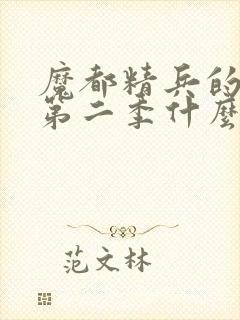 魔都精兵的
第二季什麼
范文林